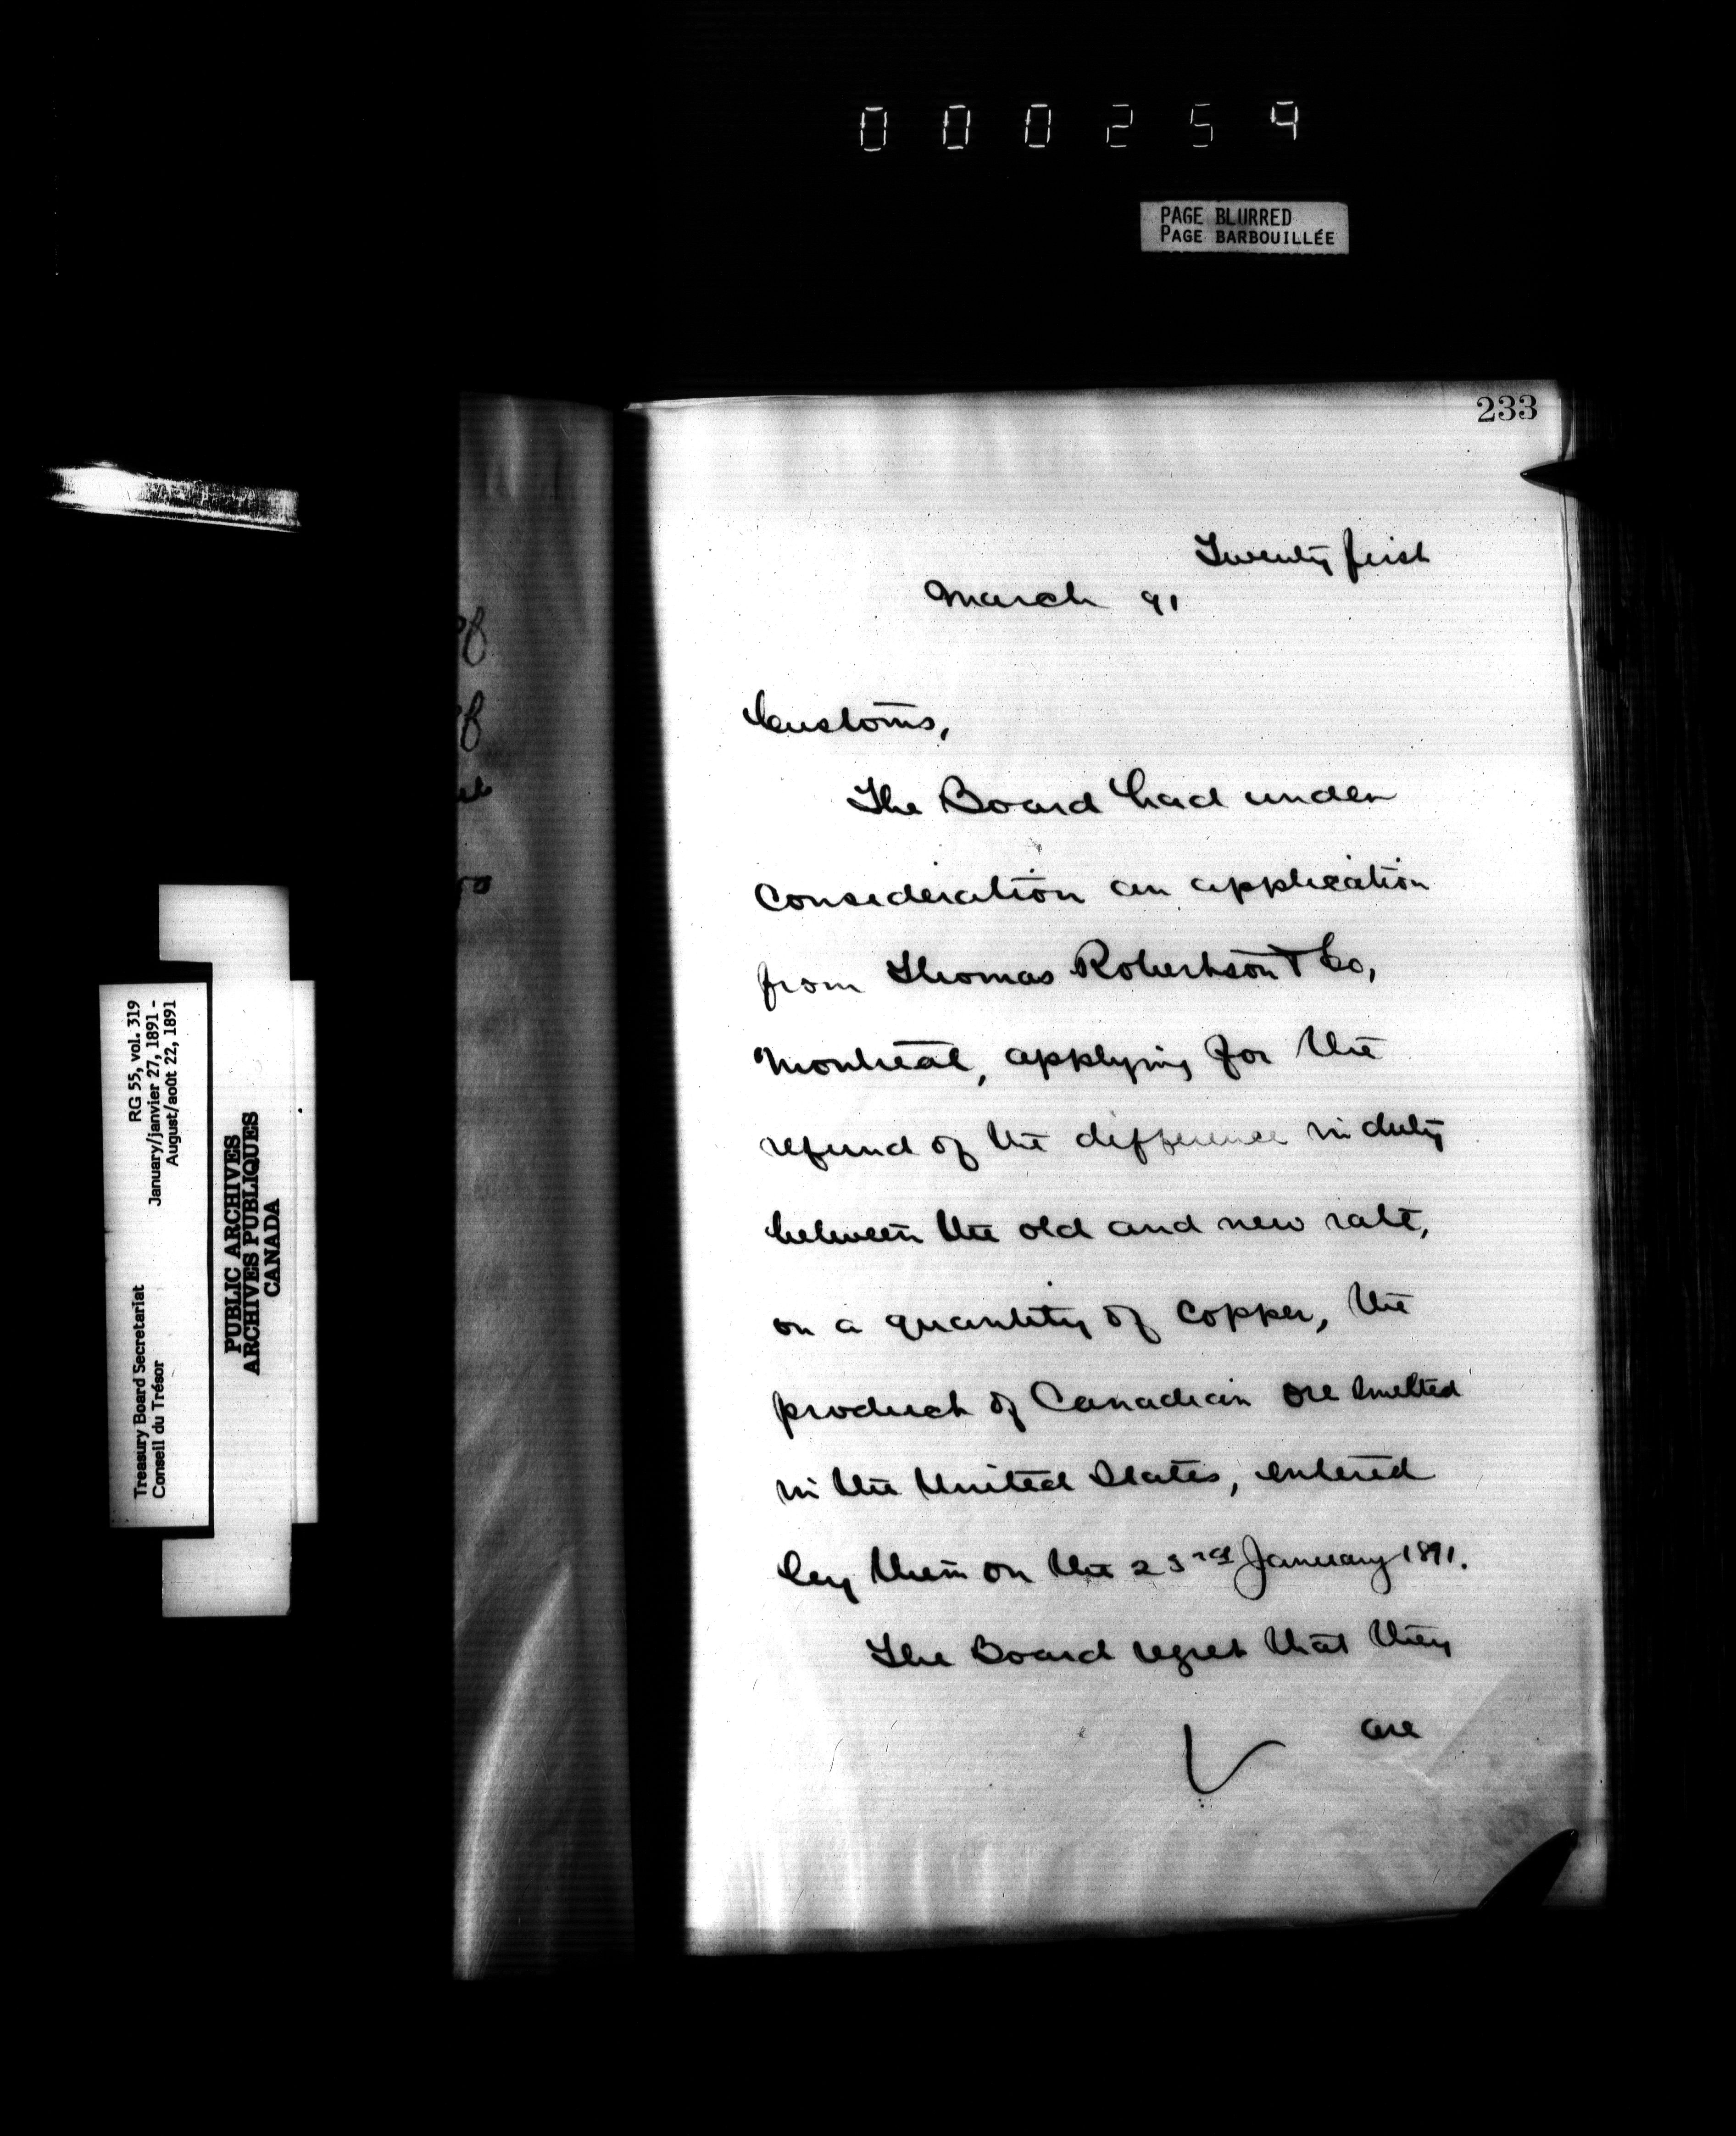 000259
PAGE BLURRED
PAGE BARBOUILLÉE
233
Twenty first
March 91
Customs,
The Board had under
consideration an application
from Thomas Robertson & Co,
Montreal, applying for the
refund of the difference in duty
between the old and new rate,
on a quantity of copper, the
product of Canadian ore smelted
in the United States, entered
by them on the 23rd January 1891.
The Board regret that they
are
RG 55, vol. 319
January/janvier 27, 1891 -
August/août 22, 1891
Treasury Board Secretariat
Conseil du Trésor
PUBLIC ARCHIVES
ARCHIVES PUBLIQUES
CANADA